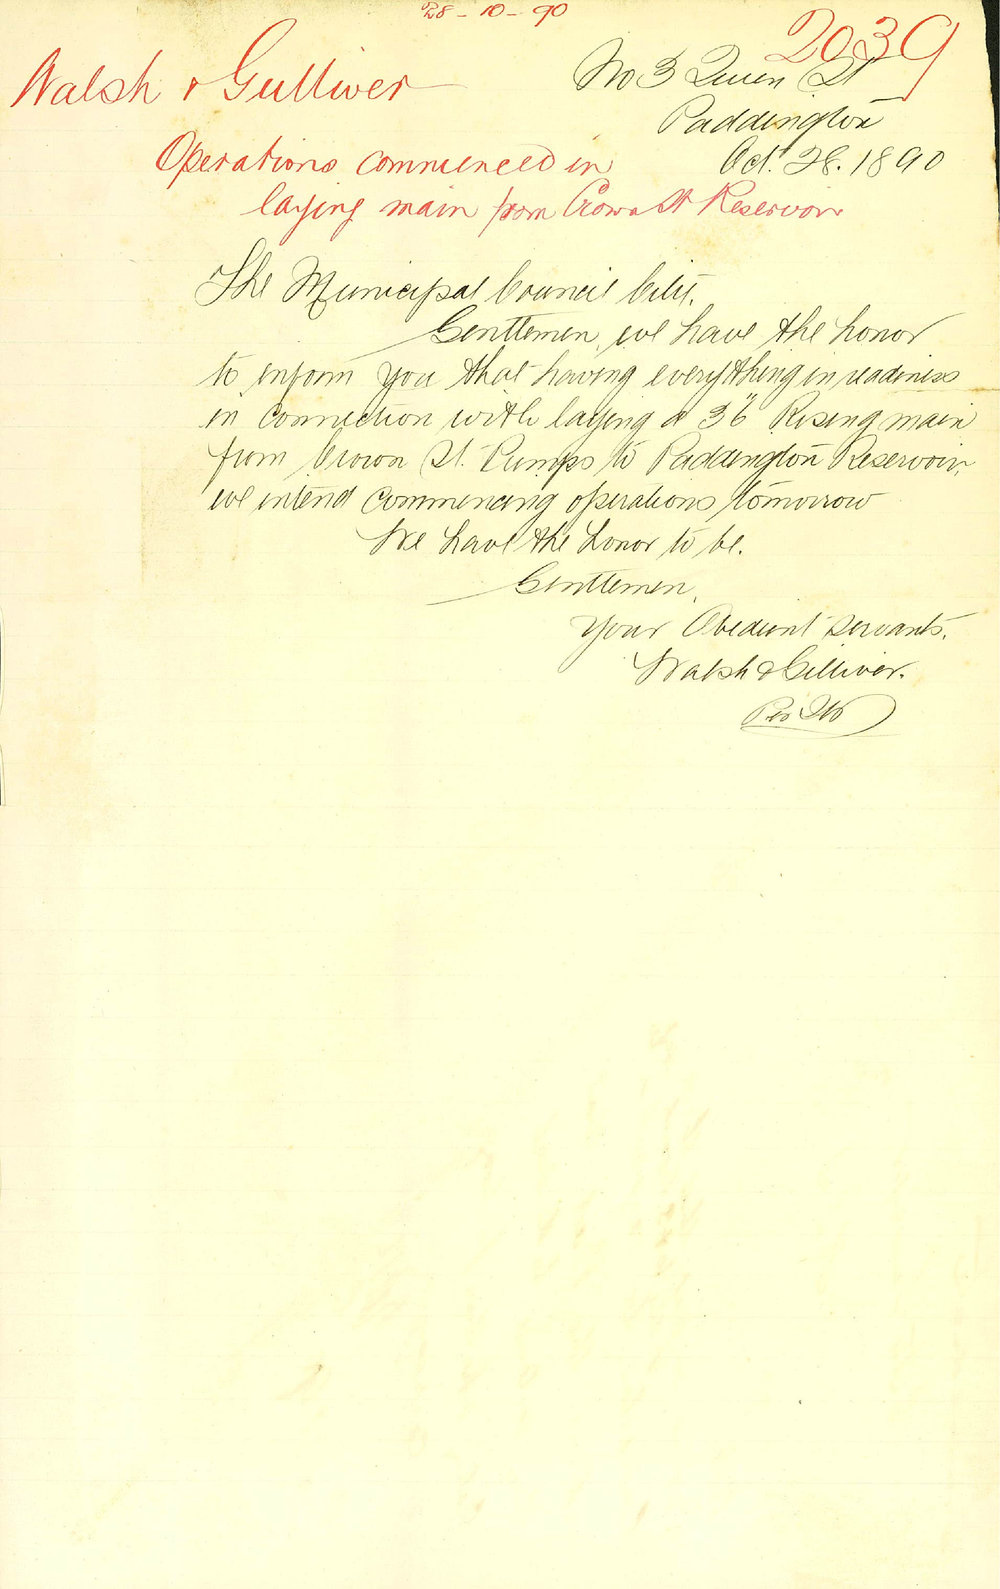 28-10-90
2039
Walsh & Gulliver
No 3 Queen St
Paddington
Oct. 28. 1890
Operations commenced in
laying main from Crown St Reservoir
The Municipal Council City.
Gentlemen, we have the honor
to inform you that having everything in readiness
in connection with laying a 36" Rising main
from Crown St. Pumps to Paddington Reservoir,
we intend commencing operations tomorrow
We have the honor to be.
Gentlemen,
Your Obedient servants.
Walsh & Gilliver.
Per